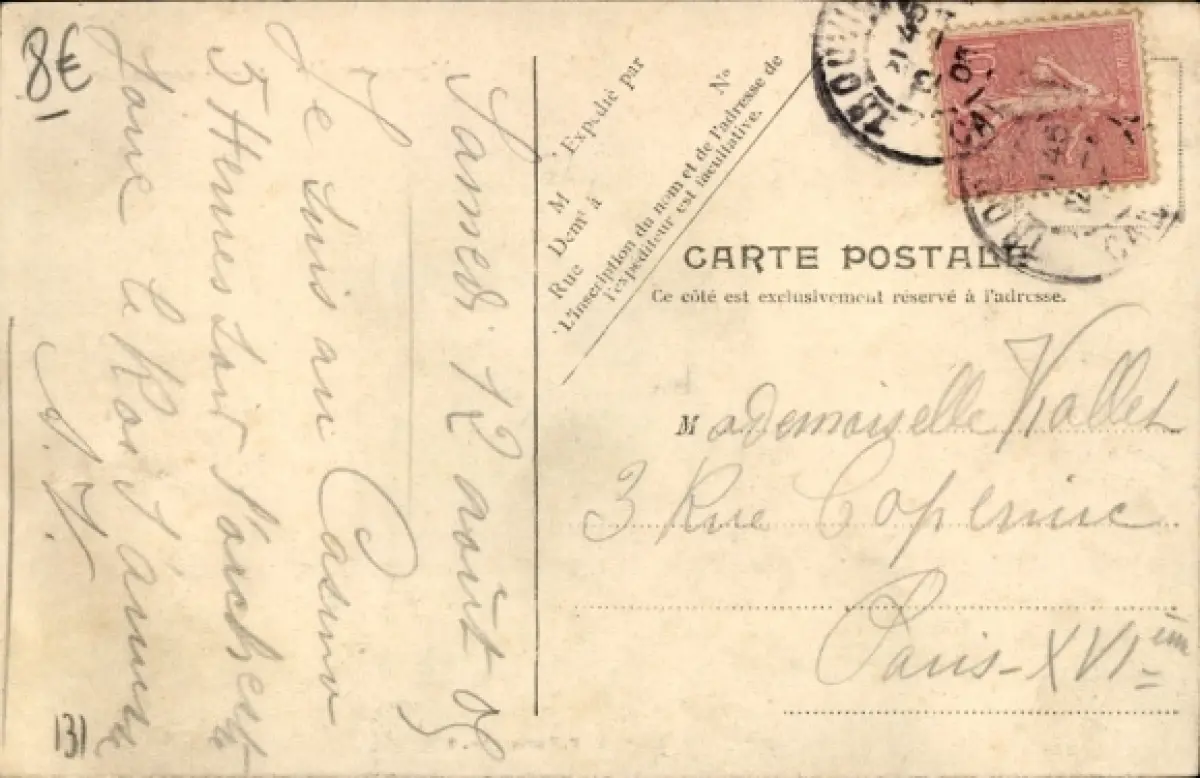 8€
Samedi 12 août 05
Je suis au Casino
5 Heures soir l'orchestre
joue le Roi s'amuse
J. V.
131
M Expédié par
Demt à
Rue N°
L'inscription du nom et de l'adresse de
l'expéditeur est facultative.
CARTE POSTALE
Ce côté est exclusivement réservé à l'adresse.
Mademoiselle Vallet
3 Rue Copernic
Paris-XVIèm